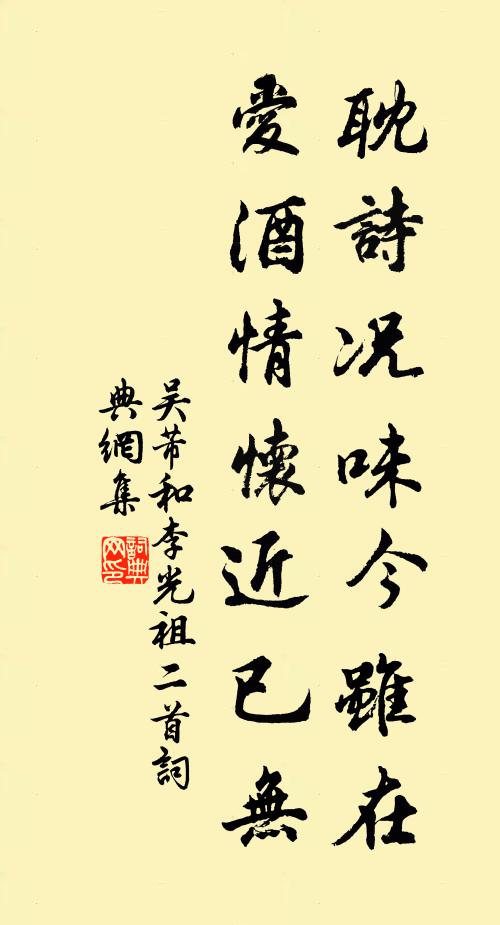 耽詩况味今雖在
愛酒情懷近已無
吴芾和李光祖二首詞
典網集
詞典
网印